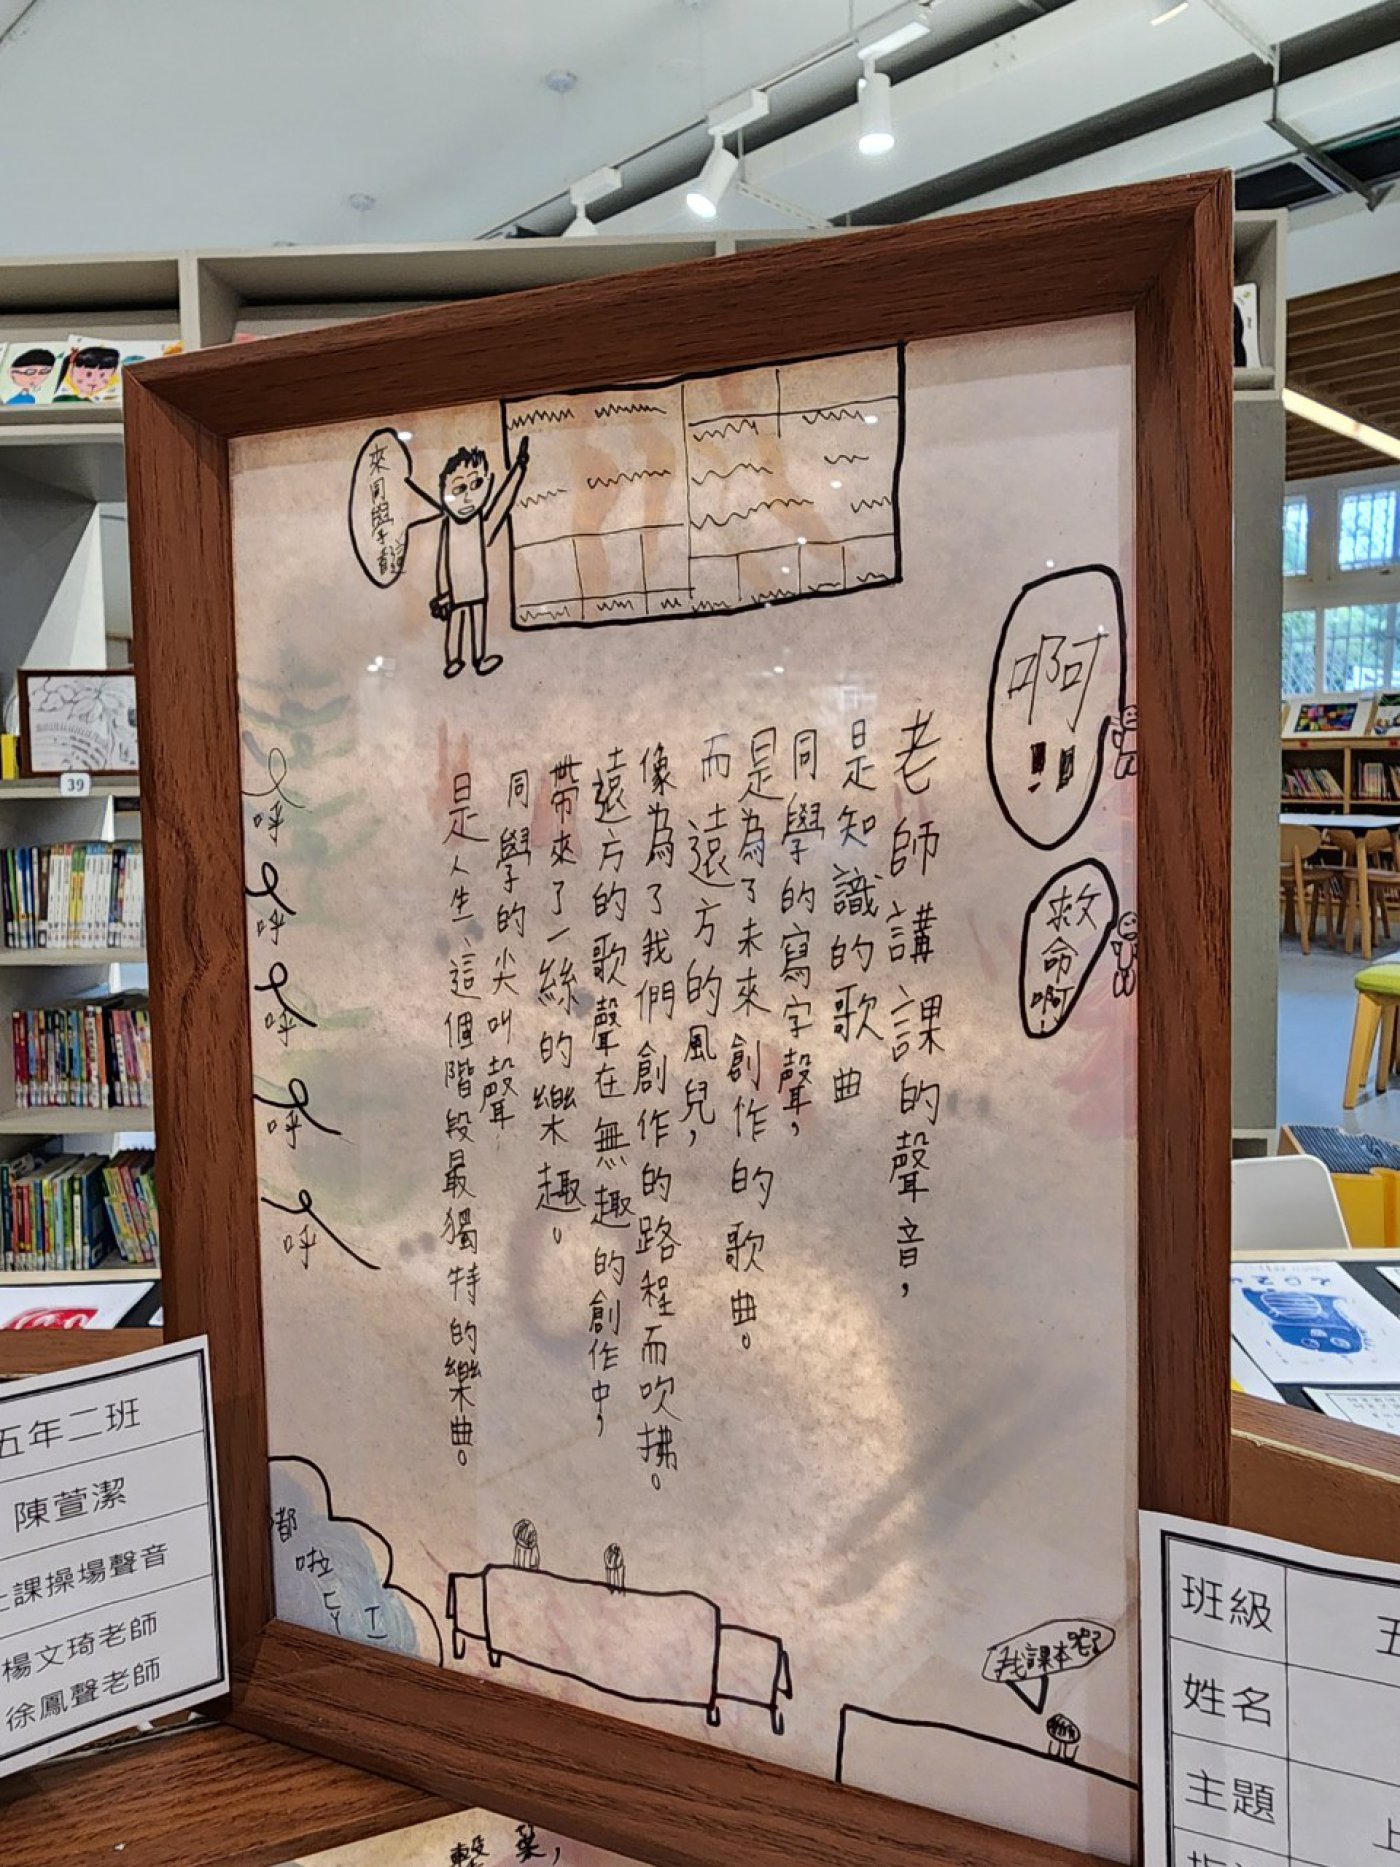 來同學看
啊!!
救命啊!
老師講課的聲音，
是知識的歌曲
同學的寫字聲，
是為了未來創作的歌曲。
而遠方的風兒，
像為了我們創作的路程而吹拂。
遠方的歌聲在無趣的創作中，
帶來了一絲的樂趣。
同學的尖叫聲，
是人生這個階段最獨特的樂曲。
呼
呼
呼
呼
呼
嘟
啦
我課本呢?
39
五年二班
陳萱潔
上課操場聲音
楊文琦老師
徐鳳聲老師
班級
五
姓名
主題
上